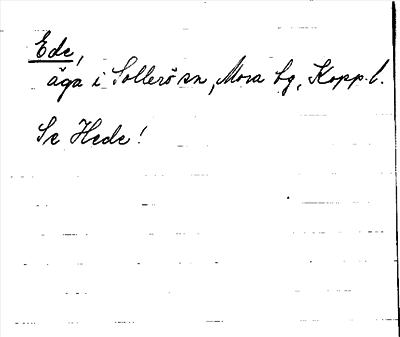 Ede,
äga i Sollerö sn, Mora tg, Kopp. l.
Se Hede!